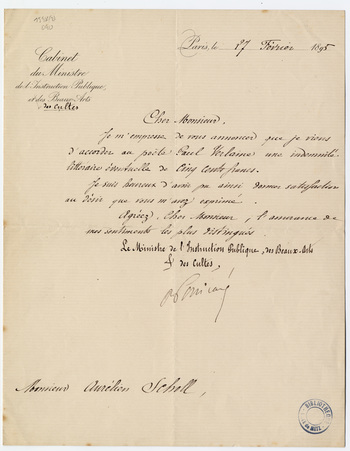 Cabinet
du Ministre
de l'Instruction Publique
et des Beaux-Arts
des Cultes
Paris, le 27 Février 1895
Cher Monsieur,
Je m'empresse de vous annoncer que je viens
d'accorder au poète Paul Verlaine une indemnité
littéraire éventuelle de cinq cents francs.
Je suis heureux d'avoir pu ainsi donner satisfaction
au désir que vous m'avez exprimé.
Agréez, Cher Monsieur, l'assurance de
mes sentiments les plus distingués.
Le Ministre de l'Instruction Publique, des Beaux-Arts
& des Cultes,
RPoincaré
Monsieur Aurélien Scholl,
BIBLIOTHEQ
DE METZ